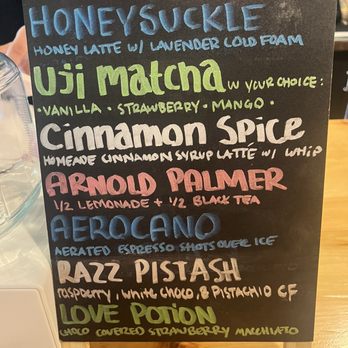 HONEYSUCKLE
HONEY LATTE W/ LAVENDER COLD FOAM
Uji Matcha W YOUR CHOICE:
• VANILLA • STRAWBERRY • MANGO •
Cinnamon Spice
HOMEADE CINNAMON SYRUP LATTE W/ WHIP
ARNOLD PALMER
1/2 LEMONADE + 1/2 BLACK TEA
AEROCANO
AERATED ESPRESSO SHOTS OVER ICE
RAZZ PISTASH
raspberry, white choco, & PISTACHIO CF
LOVE POTION
CHOCO COVERED STRAWBERRY MACCHIATO